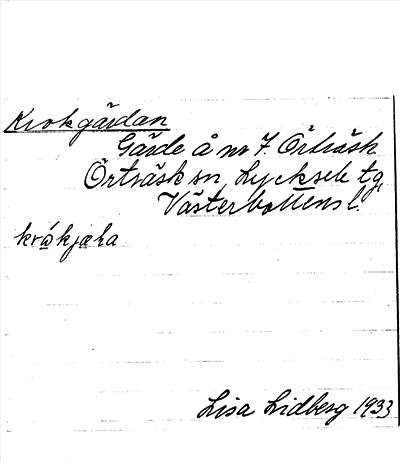 Krokgärdan
Gärde å nr 7. Örträsk
Örträsk sn, Lycksele tg
Västerbottens l.
Lisa Lidberg 1933